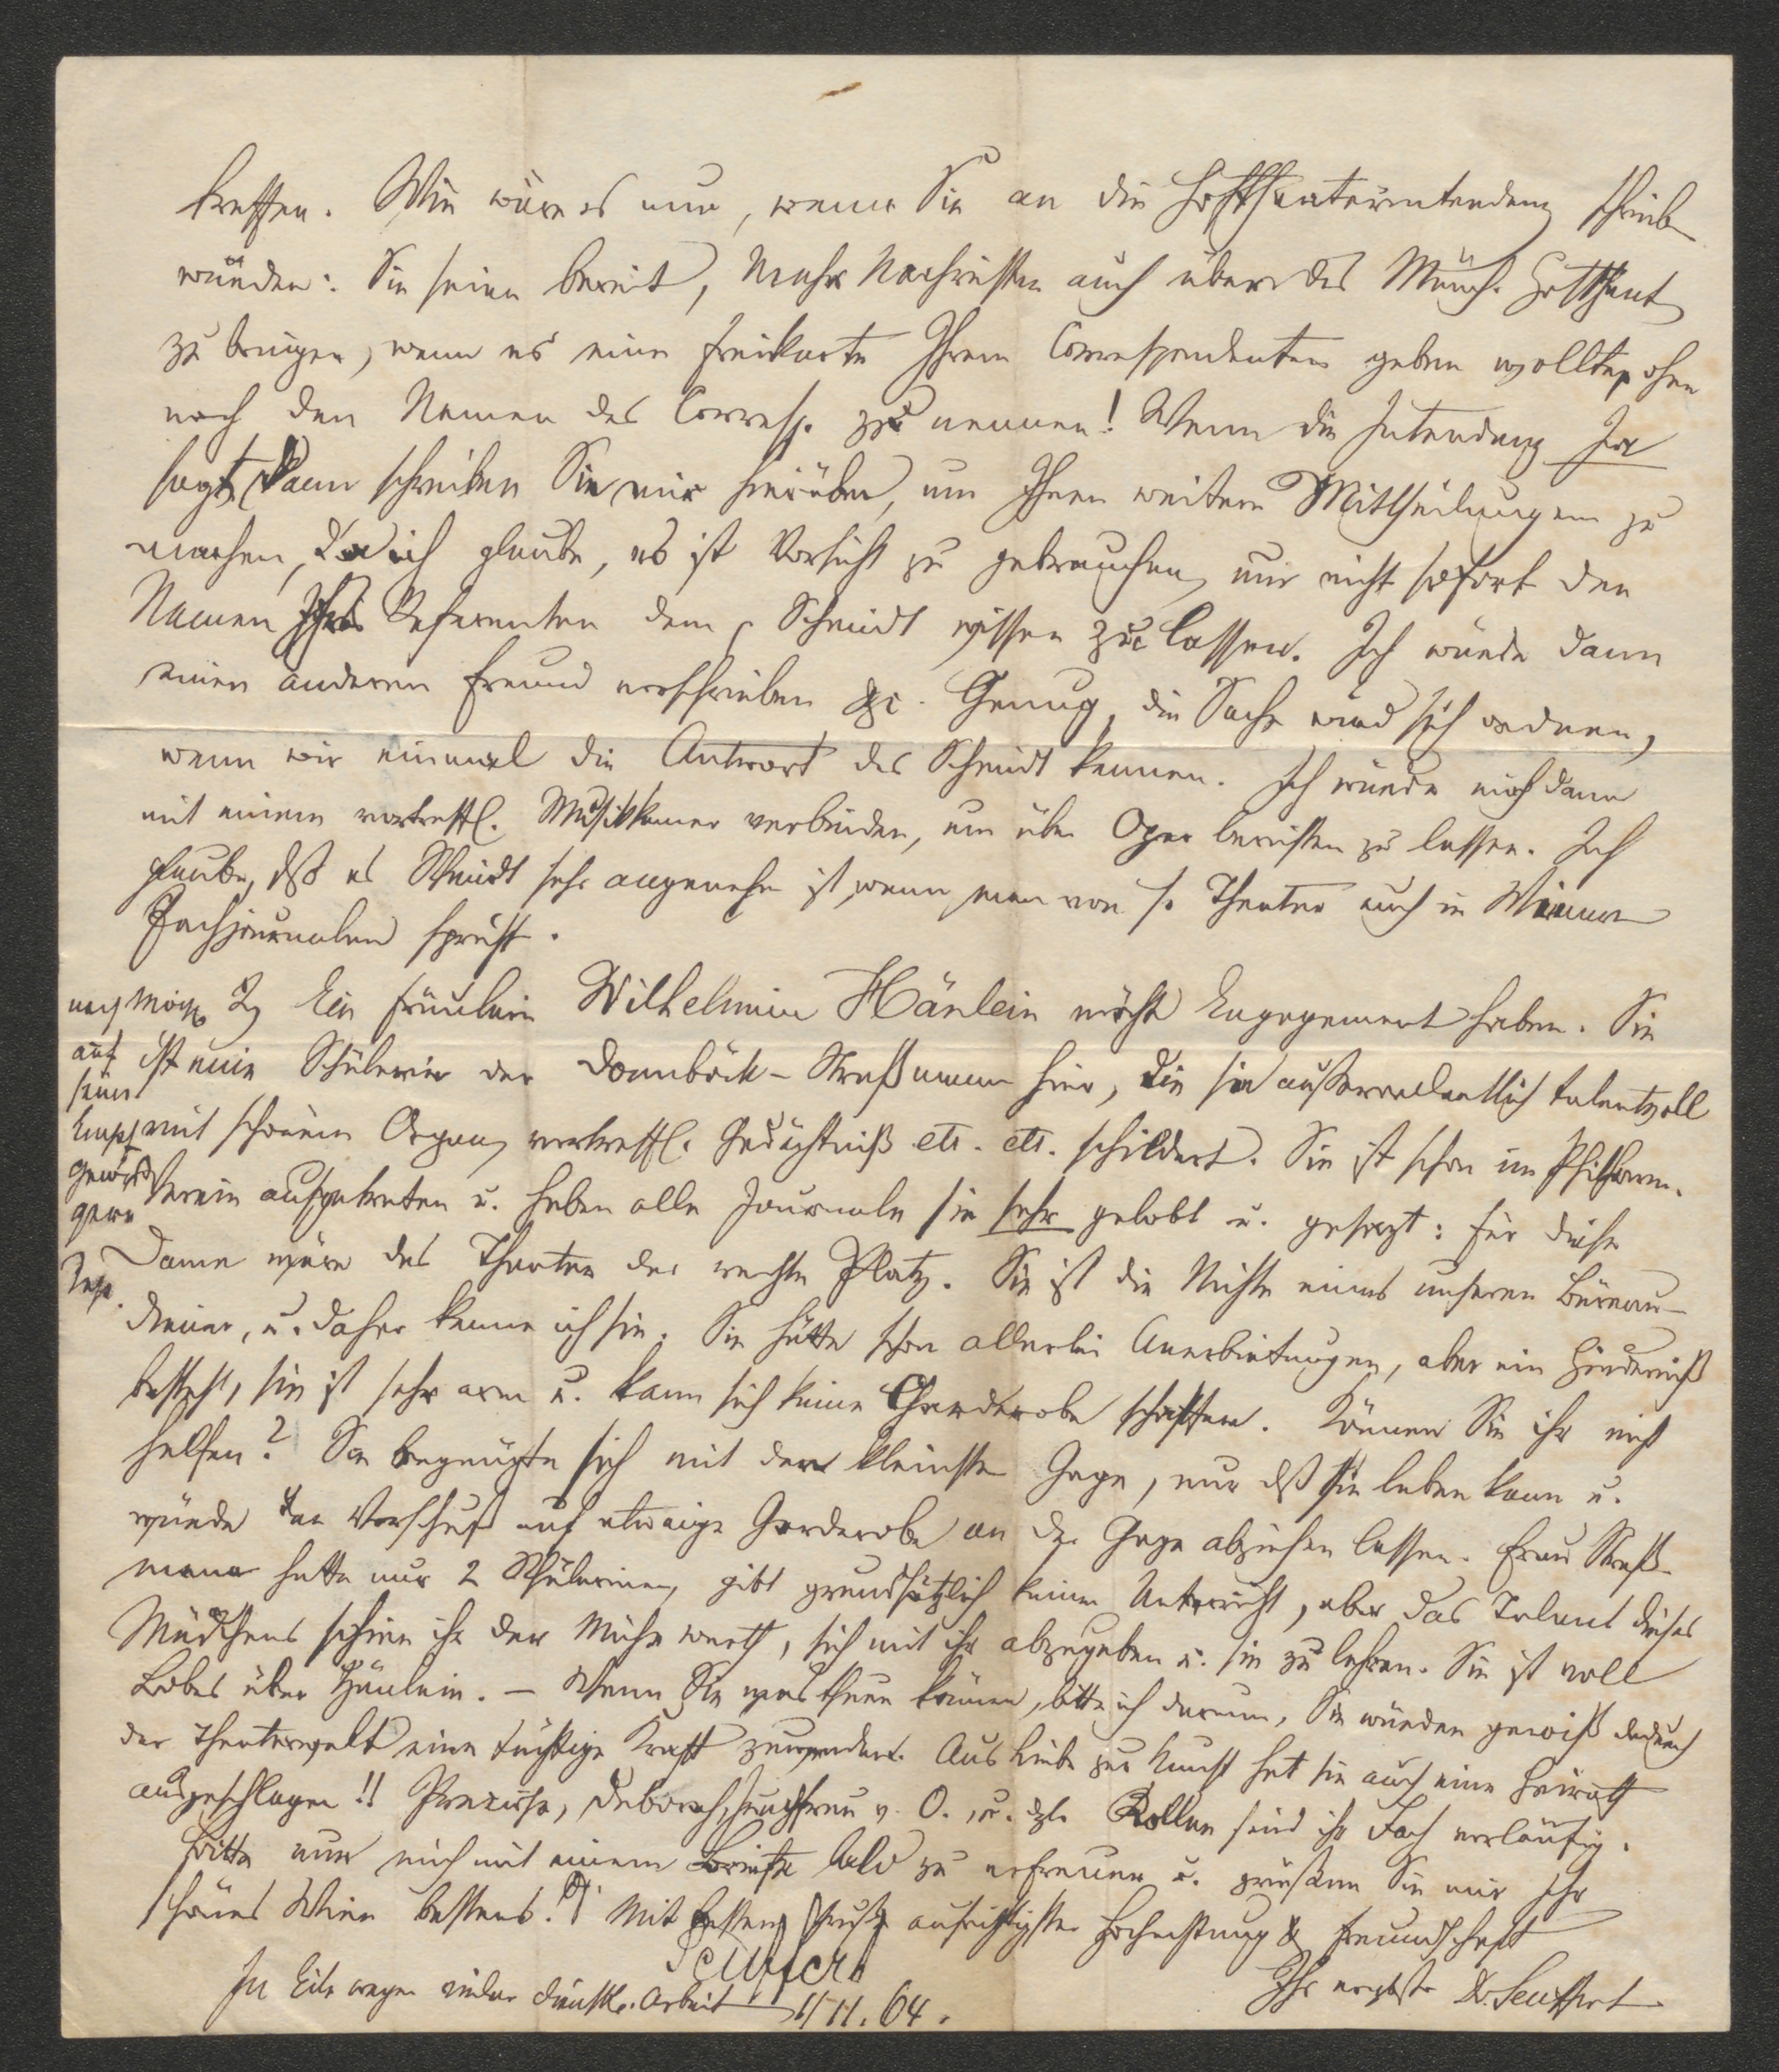 treffen. Wie wäre es nun, wenn Sie an die Hoftheaterintendanz schreib
würden: Sie seien bereit, mehr Nachrichten auch über das Münch. Hoftheat
zu bringen, wenn es eine Freikarte Ihrem Correspondenten geben wollte, ohne
noch den Namen des Corresp. zu nennen! Wenn die Intendanz Ja
sagt, dann schreiben Sie mir hierüber, um Ihnen weitere Mittheilungen zu
machen, da ich glaube, es ist Vorsicht zu gebrauchen, um nicht sofort den
Namen Ihres Referenten dem Schmidt wissen zu lassen. Ich würde dann
einen anderen Freund vorschieben &c. Genug, die Sache wird sich ordnen,
wenn wir einmal die Antwort des Schmidt kennen. Ich würde mich dann
mit einem vortreffl. Musikkenner verbinden, um über Oper berichten zu lassen. Ich
glaube, dß es Schmidt sehr angenehm ist, wenn man von s. Theater auch in Wiener
Fachjournalen spricht.
2) Ein Fräulein Wilhelmine Hänlein möchte Engagement haben. Sie
ist eine Schülerin der Dambök-Straßmann hier, die sie außerordentlich talentvoll
mit schönem Organ, vortreffl. Gedächtniß etc. etc. schildert. Sie ist schon im Philharm.
Verein aufgetreten u. haben alle Journale sie sehr gelobt u. gesagt: für diese
Dame wäre das Theater der rechte Platz. Sie ist die Nichte eines unserer Büreau-
diener, u. daher kenne ich sie. Sie hätte schon allerlei Anerbietungen, aber ein Hinderniß
besteht, sie ist sehr arm u. kann sich keine Garderobe schaffen. Können Sie ihr nicht
helfen? Sie begnügte sich mit der kleinsten Gage, nur dß sie leben kann u.
würde den Vorschuß auf etwaige Garderobe an der Gage abziehen lassen. Frau Straß-
mann hatte nur 2 Schülerinen, gibt grundsätzlich keinen Unterricht, aber das Talent dieses
Mädchens schien ihr der Mühe werth, sich mit ihr abzugeben u. sie zu lehren. Sie ist voll
Lobes über Hänlein. – Wenn Sie was thun können, bitte ich darum, Sie würden gewiß dadurch
der Theaterwelt eine tüchtige Kraft zuwenden. Aus Liebe zur Kunst hat sie auch eine Heirath
ausgeschlagen!! Preciosa, Deborah, Jungfrau v. O., u. dgl. Rollen sind ihr Fach vorläufig.
Bitte nun mich mit einem Briefe bald zu erfreuen u. grüßen Sie mir Ihr
schönes Wien bestens! Mit aufrichtigster Hochachtung & Freundschaft
Ihr ergebster Dr. Seuffert
Seuffert
In Eile wegen vieler dienstl. Arbeit 11. 64.
auf
seine
gern